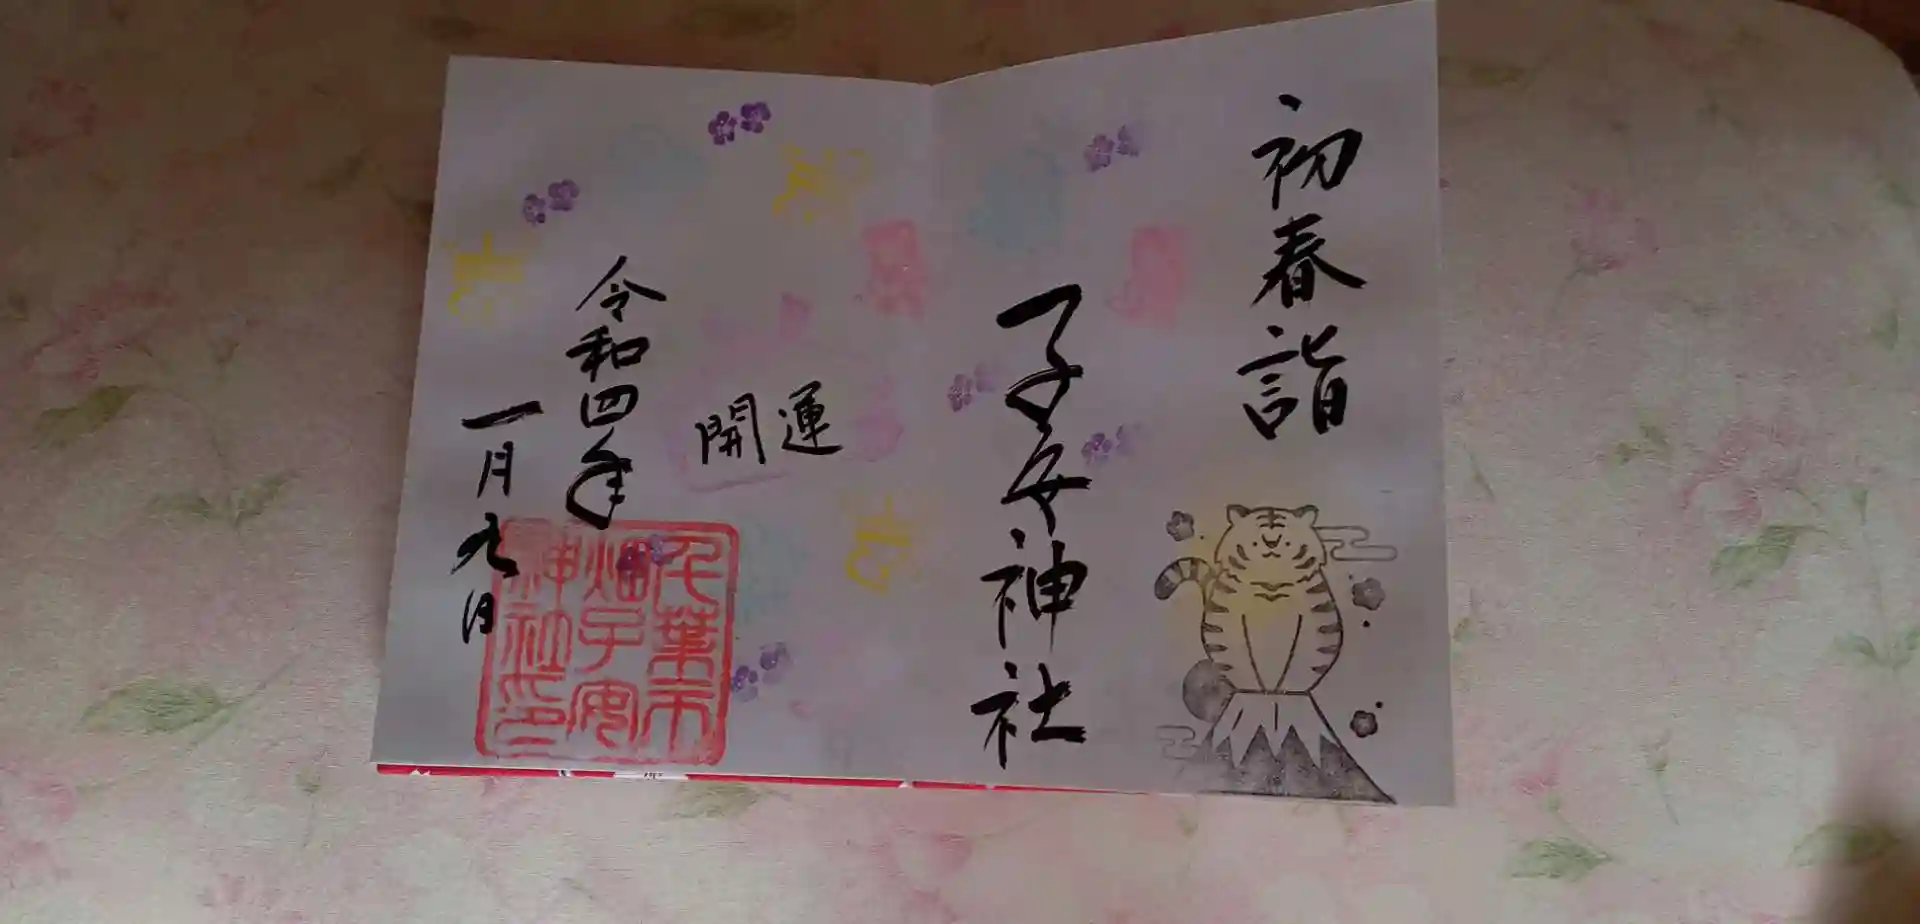 初春詣
子安神社
開運
令和四年
一月九日
千葉市
畑子安
神社印
吉
吉
吉